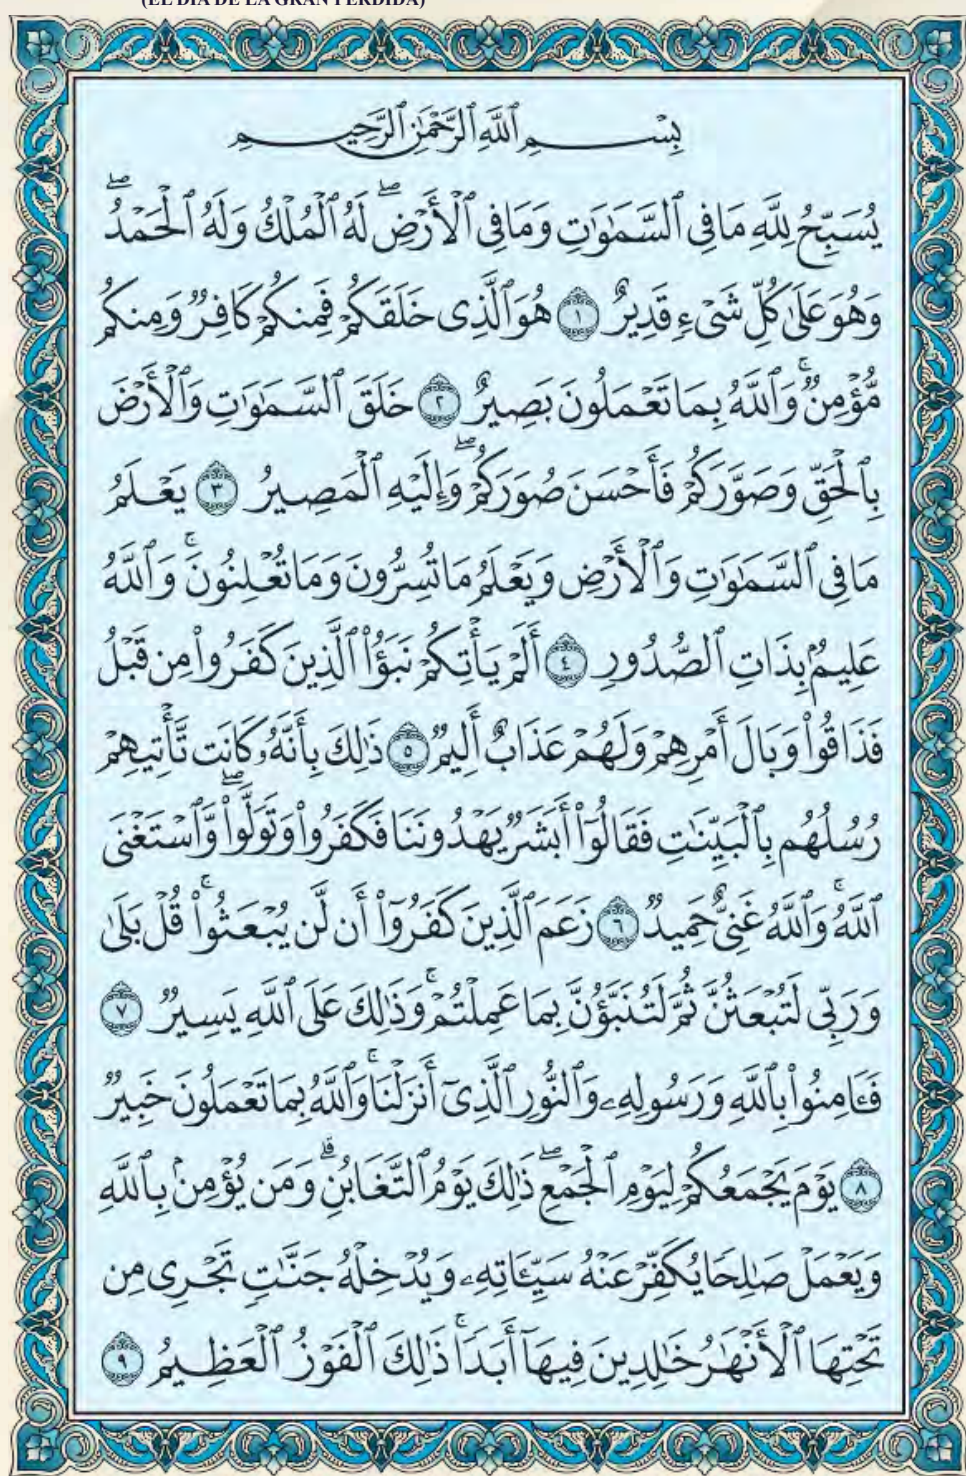 (EL DÍA DE LA GRAN PÉRDIDA)
بِسْمِ ٱللَّهِ ٱلرَّحْمَٰنِ ٱلرَّحِيمِ
يُسَبِّحُ لِلَّهِ مَا فِى ٱلسَّمَٰوَٰتِ وَمَا فِى ٱلْأَرْضِ ۖ لَهُ ٱلْمُلْكُ وَلَهُ ٱلْحَمْدُ ۖ
وَهُوَ عَلَىٰ كُلِّ شَىْءٍ قَدِيرٌ ١ هُوَ ٱلَّذِى خَلَقَكُمْ فَمِنكُمْ كَافِرٌ وَمِنكُم
مُّؤْمِنٌ ۚ وَٱللَّهُ بِمَا تَعْمَلُونَ بَصِيرٌ ٢ خَلَقَ ٱلسَّمَٰوَٰتِ وَٱلْأَرْضَ
بِٱلْحَقِّ وَصَوَّرَكُمْ فَأَحْسَنَ صُوَرَكُمْ ۖ وَإِلَيْهِ ٱلْمَصِيرُ ٣ يَعْلَمُ
مَا فِى ٱلسَّمَٰوَٰتِ وَٱلْأَرْضِ وَيَعْلَمُ مَا تُسِرُّونَ وَمَا تُعْلِنُونَ ۚ وَٱللَّهُ
عَلِيمٌۢ بِذَاتِ ٱلصُّدُورِ ٤ أَلَمْ يَأْتِكُمْ نَبَؤُا۟ ٱلَّذِينَ كَفَرُوا۟ مِن قَبْلُ
فَذَاقُوا۟ وَبَالَ أَمْرِهِمْ وَلَهُمْ عَذَابٌ أَلِيمٌ ٥ ذَٰلِكَ بِأَنَّهُۥ كَانَت تَّأْتِيهِمْ
رُسُلُهُم بِٱلْبَيِّنَٰتِ فَقَالُوٓا۟ أَبَشَرٌ يَهْدُونَنَا فَكَفَرُوا۟ وَتَوَلَّوا۟ ۖ وَّٱسْتَغْنَى
ٱللَّهُ ۚ وَٱللَّهُ غَنِىٌّ حَمِيدٌ ٦ زَعَمَ ٱلَّذِينَ كَفَرُوٓا۟ أَن لَّن يُبْعَثُوا۟ ۚ قُلْ بَلَىٰ
وَرَبِّى لَتُبْعَثُنَّ ثُمَّ لَتُنَبَّؤُنَّ بِمَا عَمِلْتُمْ ۚ وَذَٰلِكَ عَلَى ٱللَّهِ يَسِيرٌ ٧
فَـَٔامِنُوا۟ بِٱللَّهِ وَرَسُولِهِۦ وَٱلنُّورِ ٱلَّذِىٓ أَنزَلْنَا ۚ وَٱللَّهُ بِمَا تَعْمَلُونَ خَبِيرٌ
٨ يَوْمَ يَجْمَعُكُمْ لِيَوْمِ ٱلْجَمْعِ ۖ ذَٰلِكَ يَوْمُ ٱلتَّغَابُنِ ۗ وَمَن يُؤْمِنۢ بِٱللَّهِ
وَيَعْمَلْ صَٰلِحًا يُكَفِّرْ عَنْهُ سَيِّـَٔاتِهِۦ وَيُدْخِلْهُ جَنَّٰتٍ تَجْرِى مِن
تَحْتِهَا ٱلْأَنْهَٰرُ خَٰلِدِينَ فِيهَآ أَبَدًا ۚ ذَٰلِكَ ٱلْفَوْزُ ٱلْعَظِيمُ ٩